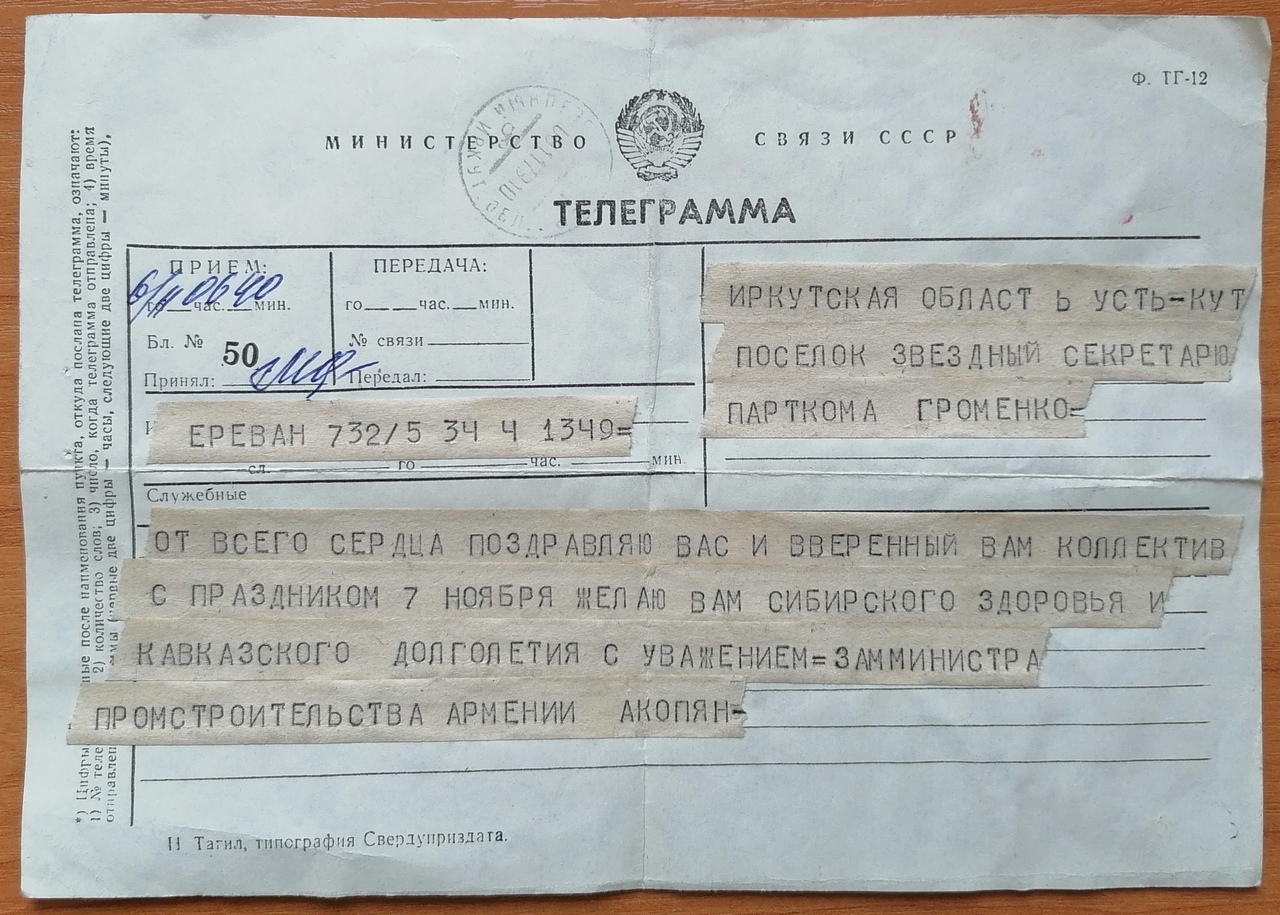 Ф. ТГ-12
МИНИСТЕРСТВО СВЯЗИ СССР
ТЕЛЕГРАММА
ПРИЕМ:
6/11 0640
го час. мин.
Бл. №
50
Принял:
ПЕРЕДАЧА:
го час. мин.
№ связи
Передал:
ИРКУТСКАЯ ОБЛАСТ Ь УСТЬ-КУТ
ПОСЕЛОК ЗВЕЗДНЫЙ СЕКРЕТАРЮ
ПАРТКОМА ГРОМЕНКО=
ЕРЕВАН 732/5 34 4 1349=
сл. го час. мин.
Служебные
ОТ ВСЕГО СЕРДЦА ПОЗДРАВЛЯЮ ВАС И ВВЕРЕННЫЙ ВАМ КОЛЛЕКТИВ
С ПРАЗДНИКОМ 7 НОЯБРЯ ЖЕЛАЮ ВАМ СИБИРСКОГО ЗДОРОВЬЯ И
КАВКАЗСКОГО ДОЛГОЛЕТИЯ С УВАЖЕНИЕМ=ЗАММИНИСТРА
ПРОМСТРОИТЕЛЬСТВА АРМЕНИИ АКОПЯН-
Н Тагил, типография Свердуприздата.
*) Цифры после наименования пункта, откуда послана телеграмма, означают:
1) № 2) количество слов; 3) число, когда телеграмма отправлена; 4) время
две цифры — часы, следующие две цифры — минуты),